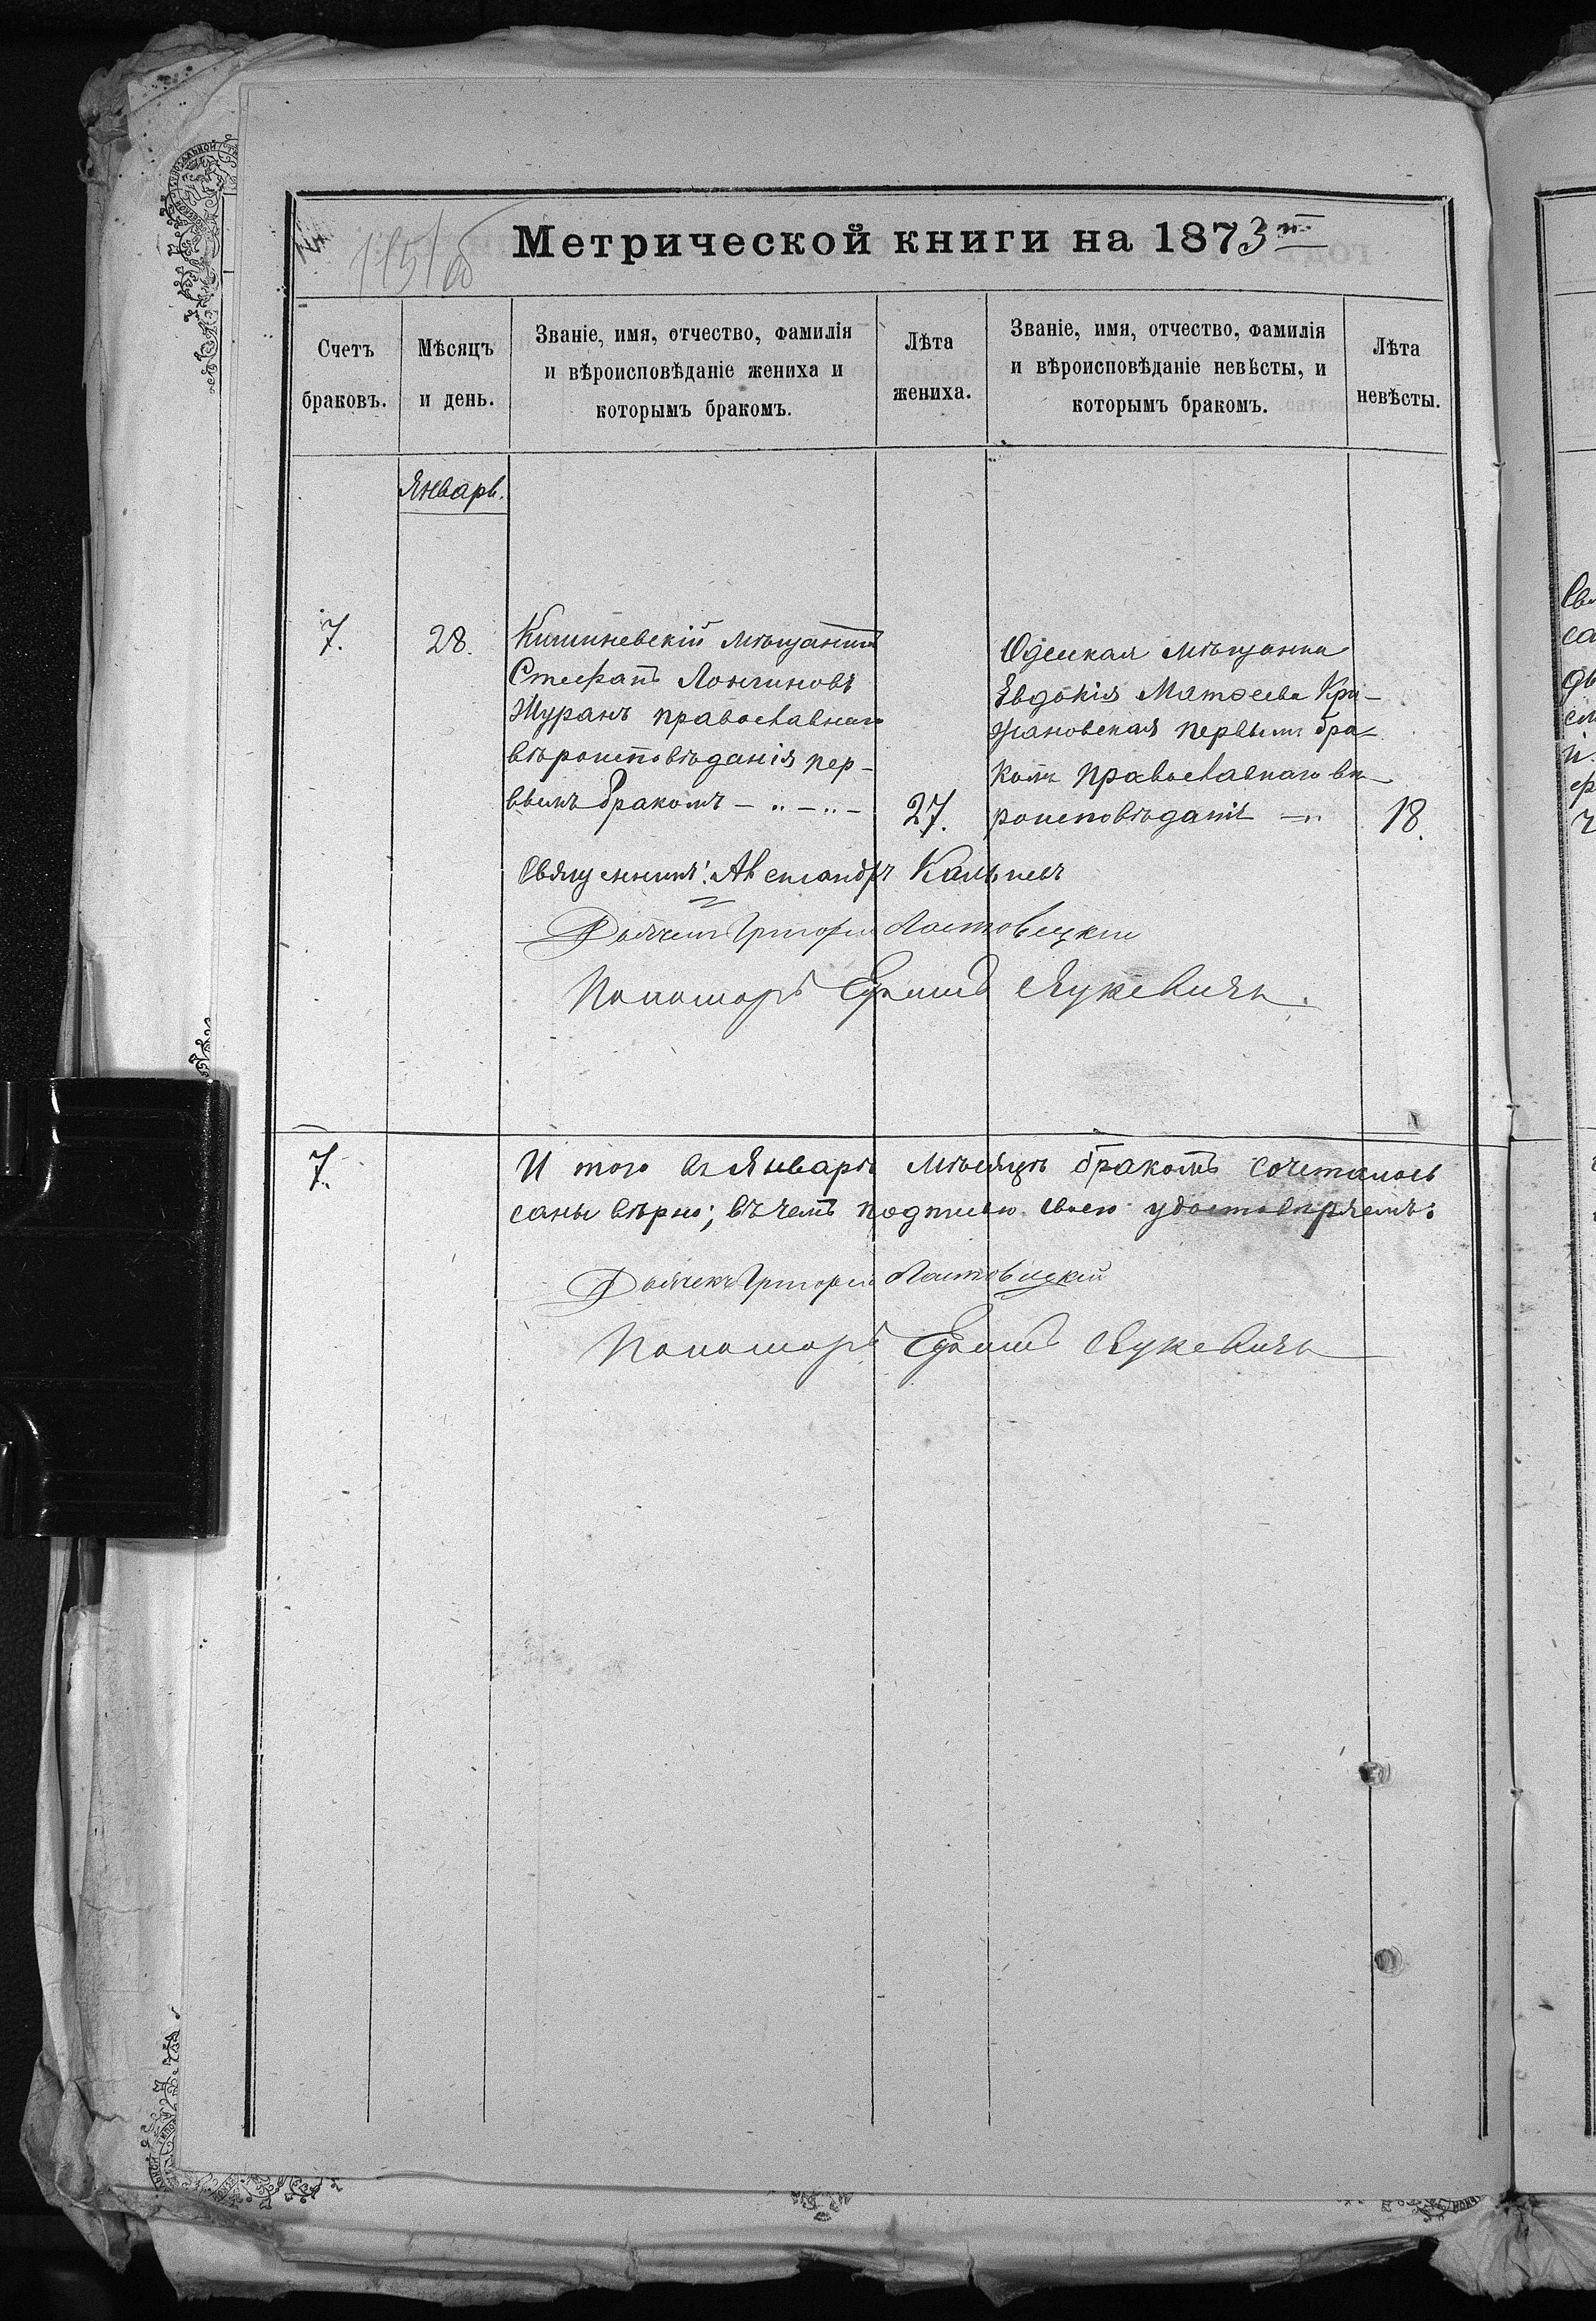 Метрической книги на 1873
Счетъ браковъ.
Мѣсяцъ и день.
Званіе, имя, отчество, фамилія
и вѣроисповѣданіе жениха и
которымъ бракомъ.
Лѣта жениха.
Званіе, имя, отчество, фамилія
и вѣроисповѣданіе невѣсты, и
которымъ бракомъ.
Лѣта невѣсты.
Январь.
7.
28.
Кишиневскій мѣщанинъ
Стефанъ Лончиновъ
Журанъ православнаго
вѣроисповѣданія пер-
вымъ бракомъ
27.
Одесская мѣщанка
Евдокія Матѳеева Кри-
жановская первымъ бра-
комъ православнаго вѣ-
роисповѣданія
18.
Священникъ Александръ
Дьячекъ Григорій Ластовецкій
Пономарь Ефимъ Лукевичъ.
7.
И того въ Январѣ мѣсяцѣ бракомъ сочеталось
саны вѣрно; въ чемъ подписью своею удостовѣряемъ:
Дьячекъ Григорій Ластовецкій
Пономарь Ефимъ Лукевичъ